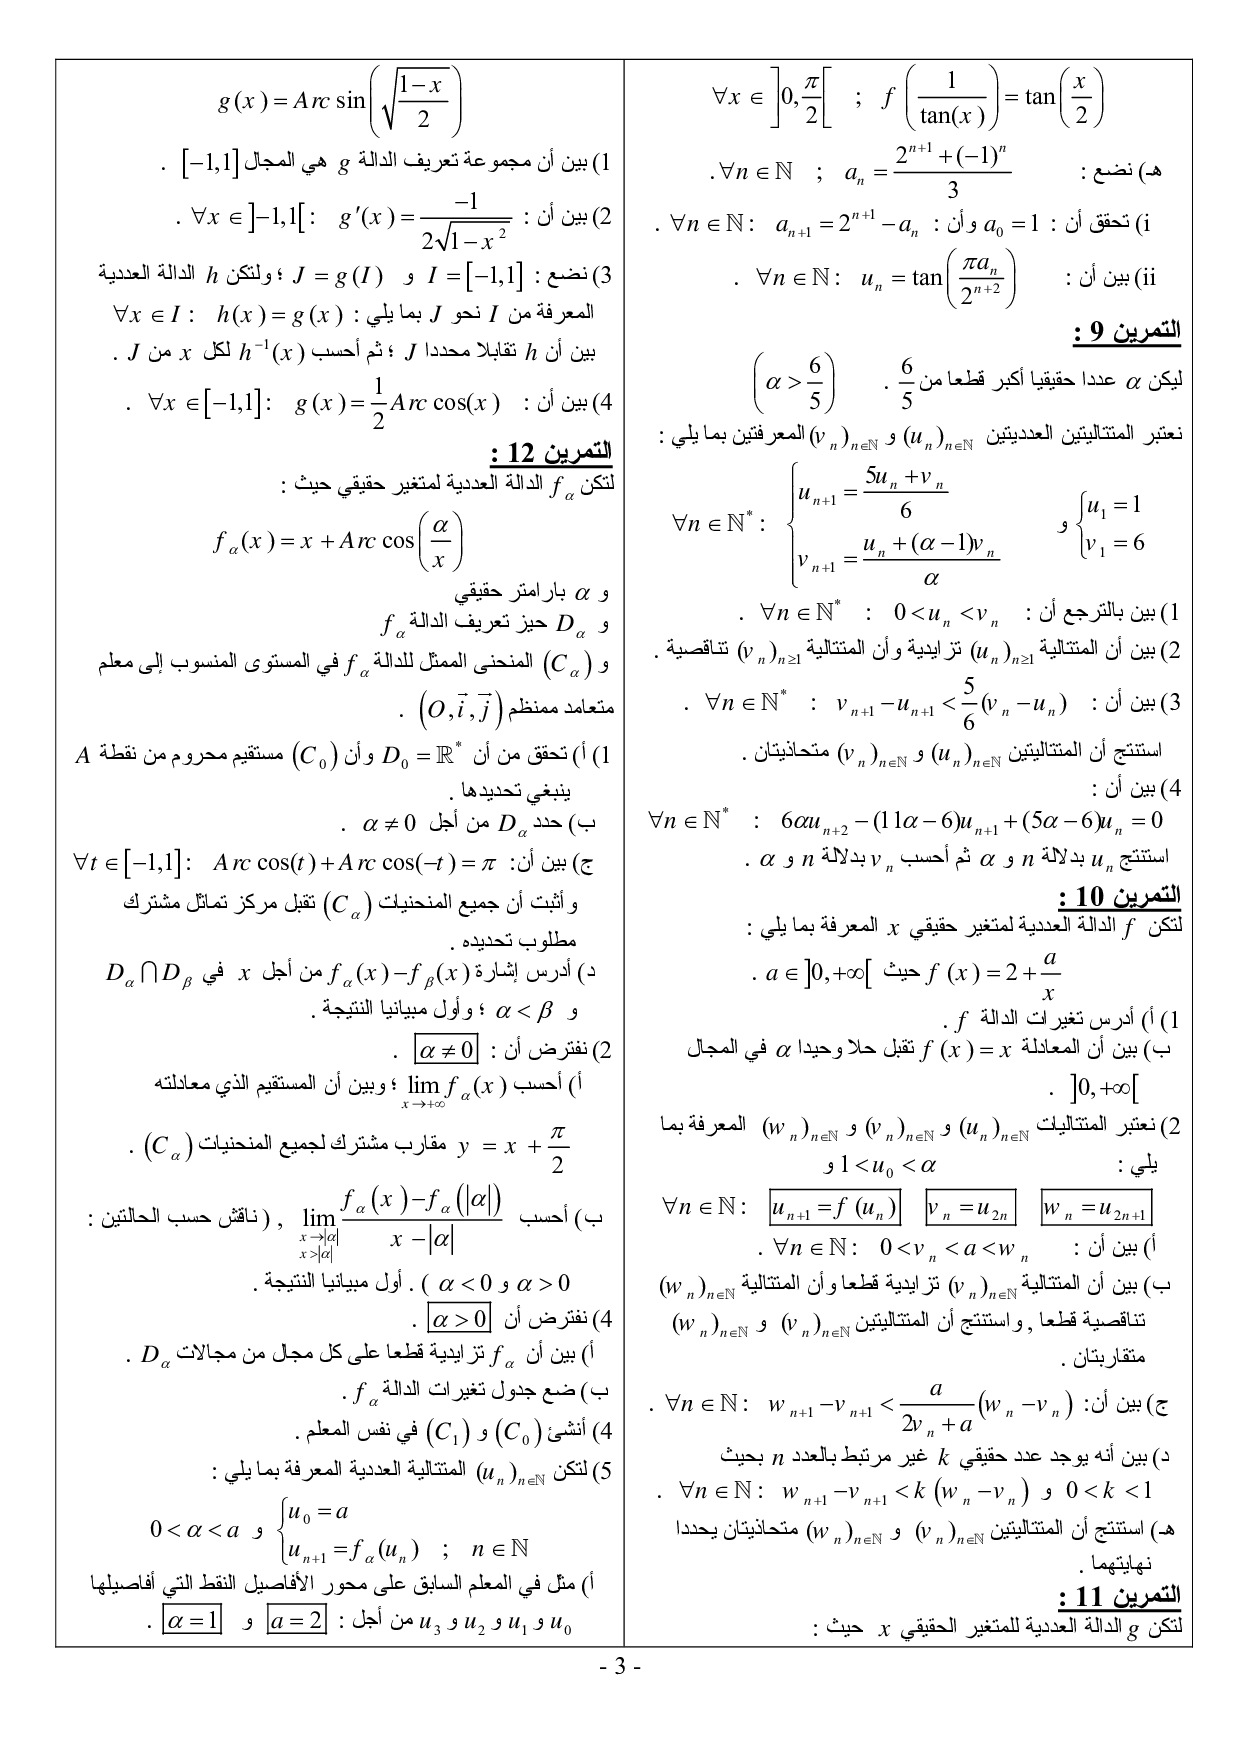 ∀x ∈ ]0, π/2[ ; f(1/tan(x)) = tan(x/2)
هـ) نضع : ∀n ∈ ℕ ; a_n = (2^{n+1} + (−1)^n)/3 .
i) تحقق أن : a_0 = 1 وأن : ∀n ∈ ℕ : a_{n+1} = 2^{n+1} − a_n .
ii) بين أن : ∀n ∈ ℕ : u_n = tan(πa_n/2^{n+2}) .
التمرين 9 :
ليكن α عددا حقيقيا أكبر قطعا من 6/5 . (α > 6/5)
نعتبر المتتاليتين العدديتين (u_n)_{n∈ℕ} و (v_n)_{n∈ℕ} المعرفتين بما يلي :
{u_1 = 1 ; v_1 = 6 و ∀n ∈ ℕ* : {u_{n+1} = (5u_n + v_n)/6 ; v_{n+1} = (u_n + (α−1)v_n)/α
1) بين بالترجع أن : ∀n ∈ ℕ* : 0 < u_n < v_n .
2) بين أن المتتالية (u_n)_{n≥1} تزايدية وأن المتتالية (v_n)_{n≥1} تناقصية .
3) بين أن : ∀n ∈ ℕ* : v_{n+1} − u_{n+1} < 5/6 (v_n − u_n) .
استنتج أن المتتاليتين (u_n)_{n∈ℕ} و (v_n)_{n∈ℕ} متحاذيتان .
4) بين أن :
∀n ∈ ℕ* : 6αu_{n+2} − (11α − 6)u_{n+1} + (5α − 6)u_n = 0
استنتج u_n بدلالة n و α ثم أحسب v_n بدلالة n و α .
التمرين 10 :
لتكن f الدالة العددية لمتغير حقيقي x المعرفة بما يلي :
f(x) = 2 + a/x حيث a ∈ ]0,+∞[ .
1) أ) أدرس تغيرات الدالة f .
ب) بين أن المعادلة f(x) = x تقبل حلا وحيدا α في المجال
]0,+∞[ .
2) نعتبر المتتاليات (u_n)_{n∈ℕ} و (v_n)_{n∈ℕ} و (w_n)_{n∈ℕ} المعرفة بما
يلي : 1 < u_0 < α و
∀n ∈ ℕ : u_{n+1} = f(u_n) v_n = u_{2n} w_n = u_{2n+1}
أ) بين أن : ∀n ∈ ℕ : 0 < v_n < a < w_n .
ب) بين أن المتتالية (v_n)_{n∈ℕ} تزايدية قطعا وأن المتتالية (w_n)_{n∈ℕ}
تناقصية قطعا , واستنتج أن المتتاليتين (v_n)_{n∈ℕ} و (w_n)_{n∈ℕ}
متقاربتان .
ج) بين أن: ∀n ∈ ℕ : w_{n+1} − v_{n+1} < a/(2v_n + a) (w_n − v_n) .
د) بين أنه يوجد عدد حقيقي k غير مرتبط بالعدد n بحيث
0 < k < 1 و ∀n ∈ ℕ : w_{n+1} − v_{n+1} < k(w_n − v_n) .
هـ) استنتج أن المتتاليتين (v_n)_{n∈ℕ} و (w_n)_{n∈ℕ} متحاذيتان يحددا
نهايتهما .
التمرين 11 :
لتكن g الدالة العددية للمتغير الحقيقي x حيث :
g(x) = Arc sin(√((1−x)/2))
1) بين أن مجموعة تعريف الدالة g هي المجال [−1,1] .
2) بين أن : ∀x ∈ ]−1,1[ : g′(x) = −1/(2√(1−x²)) .
3) نضع : I = [−1,1] و J = g(I) ؛ ولتكن h الدالة العددية
المعرفة من I نحو J بما يلي : ∀x ∈ I : h(x) = g(x)
بين أن h تقابلا محددا J ؛ ثم أحسب h^{−1}(x) لكل x من J .
4) بين أن : ∀x ∈ [−1,1] : g(x) = 1/2 Arc cos(x) .
التمرين 12 :
لتكن f_α الدالة العددية لمتغير حقيقي حيث :
f_α(x) = x + Arc cos(α/x)
و α بارامتر حقيقي
و D_α حيز تعريف الدالة f_α
و (C_α) المنحنى الممثل للدالة f_α في المستوى المنسوب إلى معلم
متعامد ممنظم (O, i⃗, j⃗) .
1) أ) تحقق من أن D_0 = ℝ* وأن (C_0) مستقيم محروم من نقطة A
ينبغي تحديدها .
ب) حدد D_α من أجل α ≠ 0 .
ج) بين أن: ∀t ∈ [−1,1] : Arc cos(t) + Arc cos(−t) = π
وأثبت أن جميع المنحنيات (C_α) تقبل مركز تماثل مشترك
مطلوب تحديده .
د) أدرس إشارة f_α(x) − f_β(x) من أجل x في D_α ⋂ D_β
و α < β ؛ وأول مبيانيا النتيجة .
2) نفترض أن : α ≠ 0 .
أ) أحسب lim_{x→+∞} f_α(x) ؛ وبين أن المستقيم الذي معادلته
y = x + π/2 مقارب مشترك لجميع المنحنيات (C_α) .
ب) أحسب lim_{x→|α|, x>|α|} (f_α(x) − f_α(|α|))/(x − |α|) , ( ناقش حسب الحالتين :
α > 0 و α < 0 ) . أول مبيانيا النتيجة .
4) نفترض أن α > 0 .
أ) بين أن f_α تزايدية قطعا على كل مجال من مجالات D_α .
ب) ضع جدول تغيرات الدالة f_α .
4) أنشئ (C_0) و (C_1) في نفس المعلم .
5) لتكن (u_n)_{n∈ℕ} المتتالية العددية المعرفة بما يلي :
{u_0 = a ; u_{n+1} = f_α(u_n) ; n ∈ ℕ و 0 < α < a
أ) مثل في المعلم السابق على محور الأفاصيل النقط التي أفاصيلها
u_0 و u_1 و u_2 و u_3 من أجل : a = 2 و α = 1 .
- 3 -